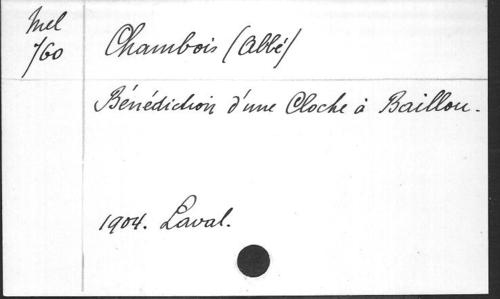 Mel
760
Chambois (Abbé)
Bénédiction d'une Cloche à Baillou.
1904. Laval.